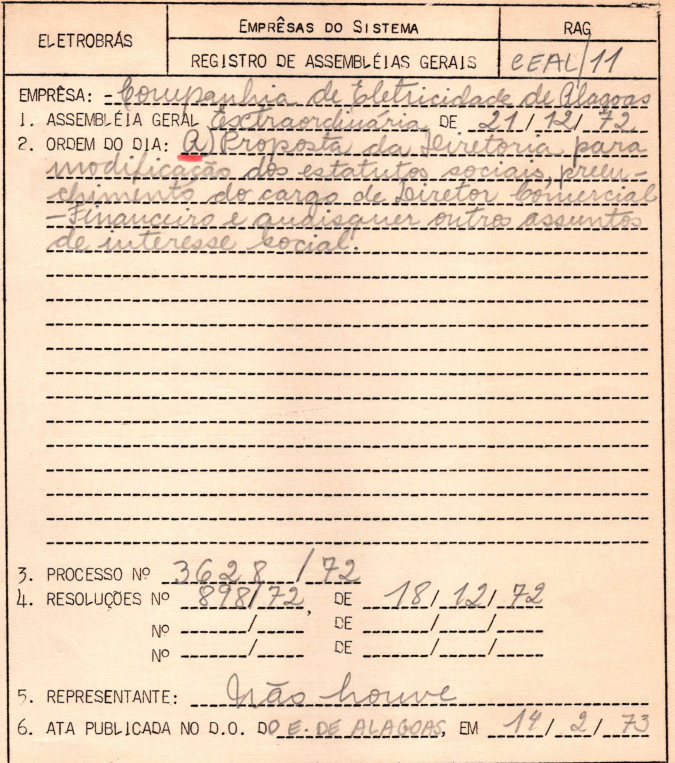 ELETROBRÁS
EMPRÊSAS DO SISTEMA
REGISTRO DE ASSEMBLÉIAS GERAIS
RAG
CEAL/11
EMPRÊSA: - Companhia de Eletricidade de Alagoas
1. ASSEMBLÉIA GERAL Extraordinária DE 21/12/72
2. ORDEM DO DIA: A) Proposta da Diretoria para
modificação dos estatutos sociais, preen-
chimento do cargo de Diretor Comercial
-Financeiro e quaisquer outros assuntos
de interesse social.
3. PROCESSO Nº 3628/72
4. RESOLUÇÕES Nº 898/72, DE 18/12/72
Nº / DE / /
Nº / DE / /
5. REPRESENTANTE: Não houve
6. ATA PUBLICADA NO D.O. DO E. DE ALAGOAS, EM 14/2/73